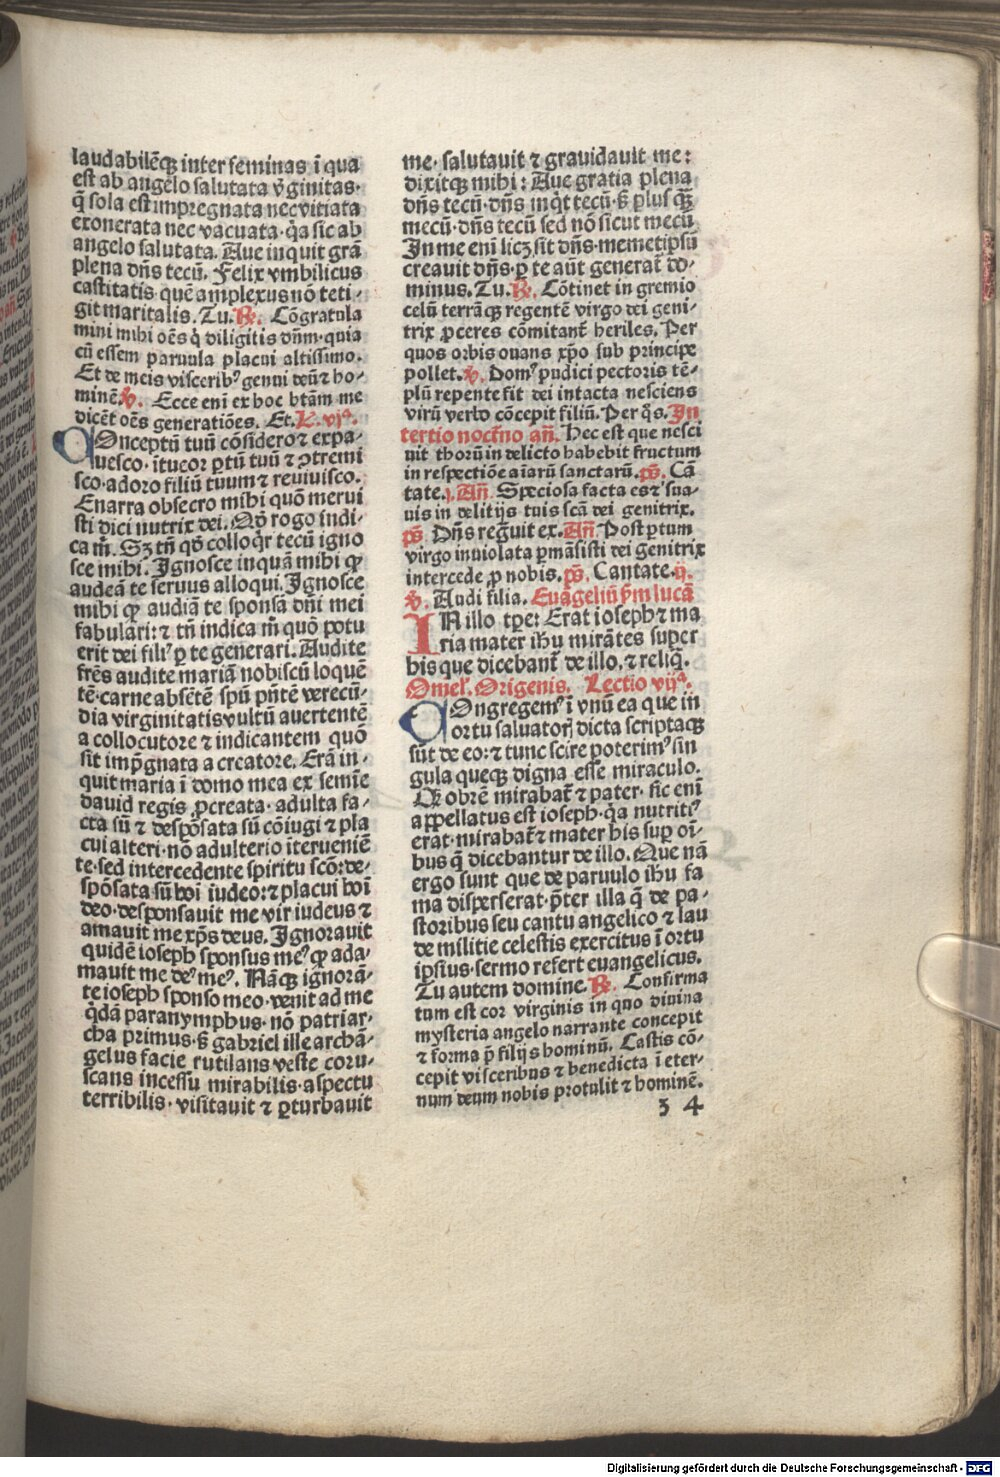 laudabilēqꝫ inter feminas ī qua
est ab angelo salutata v̄ginitas·
q̄ sola est impregnata nec vitiata
exonerata nec vacuata. q̇a sic ab
angelo salutata. Aue inquit grā
plena dn̄s tecū. Felix vmbilicus
castitatis quē amplexus nō teti-
git maritalis. Tu. ℟. Cōgratula
mini mihi oēs q̇ diligitis dn̄m· quia
cū essem paruula placui altissimo.
Et de meis visceribꝰ genui deū ⁊ ho-
minē. ℣. Ecce eni ex hoc btām me
dicēt oēs generatiōes. Et. L. vjᵃ.
COnceptū tuū cōsidero ⁊ expa-
uesco· ītueor ꝑtū tuū ⁊ ꝯtremi
sco· adoro filiū tuum ⁊ reuiuisco.
Enarra obsecro mihi quō merui
sti dici nutrix dei. Qđ rogo indi-
ca m̄. Sꝫ tn̄ qđ colloq̇r tecū igno
sce mihi. Ignosce inquā mihi ꝙ
audeā te seruus alloqui. Ignosce
mihi ꝙ audiā te sponsā dn̄i mei
fabulari: ⁊ tn̄ indica m̄ quō potu
erit dei filiꝰ ꝑ te generari. Audite
frēs audite mariā nobiscū loquē
tē· carne absētē spū pn̄tē verecū-
dia virginitatis vultū auertentē
a collocutore ⁊ indicantem quō
sit imp̄gnata a creatore. Erā in-
quit maria ī domo mea ex semīe
dauid regis ꝓcreata· adulta fa-
cta sū ⁊ despōsata sū cōiugi ⁊ pla
cui alteri· nō adulterio īterueniē
te· sed intercedente spiritu scō: de-
spōsata sū hoī iudeo: ⁊ placui hoī
deo· desponsauit me vir iudeus ⁊
amauit me xp̄s deus. Ignorauit
quidē ioseph sponsus meꝰ ꝙ ada-
mauit me deꝰ meꝰ. Nāqꝫ ignorā-
te ioseph sponso meo· venit ad me
q̇dā paranymphus· nō patriar-
cha primus· ß gabriel ille archā-
gelus facie rutilans veste coru-
scans incessu mirabilis· aspectu
terribilis· visitauit ⁊ ꝑturbauit
me· salutauit ⁊ grauidauit me:
dixitqꝫ mihi: Aue gratia plena
dn̄s tecū· dn̄s inq̇t tecū· ß plus qꝫ̄
mecū· dn̄s tecū sed nō sicut mecū
In me eni licꝫ sit dn̄s· memetipsū
creauit dn̄s· ꝑ te aūt generat̄ do-
minus. Tu. ℟. Cōtinet in gremio
celū terrāqꝫ regentē virgo dei geni-
trix ꝓceres cōmitant̄ heriles. Per
quos orbis ouans xp̄o sub principe
pollet. ℣. Domꝰ pudici pectoris tē-
plū repente fit dei intacta nesciens
virū verbo cōcepit filiū. Per q̇s. In
tertio nocť̄no an̄. Hec est que nesci
uit thorū in delicto habebit fructum
in respectiōe aīarū sanctarū. ps̄. Cā
tate. j. An̄. Speciosa facta es ⁊ sua-
uis in delitijs tuis scā dei genitrix.
ps̄. Dn̄s regͬuit ex. An̄. Post ꝑtum
virgo inuiolata ꝑmāsisti dei genitrix
intercede ꝓ nobis. ps̄. Cantate. ij.
℣. Audi filia. Euāgeliū ẜm lucā
IN illo tpe: Erat ioseph ⁊ ma
ria mater ihu mirātes super
his que dicebant̄ de illo. ⁊ reliq̄.
Omeł. Origenis. Lectio vijᵃ.
COngregemꝰ ī vnū ea que in
ortu saluatorꝭ dicta scriptaqꝫ
sūt de eo: ⁊ tunc scire poterimꝰ sin
gula queqꝫ digna esse miraculo.
Qꝫ obrē mirabat̄ ⁊ pater· sic eni
appellatus est ioseph· q̇a nutritiꝰ
erat· mirabat̄ ⁊ mater his suꝑ oī-
bus q̄ dicebantur de illo. Que nā
ergo sunt que de paruulo ihu fa
ma disperserat· p̄ter illa q̄ de pa-
storibus seu cantu angelico ⁊ lau
de militie celestis exercitus ī ortu
ipsius· sermo refert euangelicus.
Tu autem domine. ℟. Confirma
tum est cor virginis in quo diuina
mysteria angelo narrante concepit
⁊ forma p̄ filijs hominū. Castis cō-
cepit visceribus ⁊ benedicta ī eter-
num deum nobis protulit ⁊ hominē.
3 4
Digitalisierung gefördert durch die Deutsche Forschungsgemeinschaft - DFG